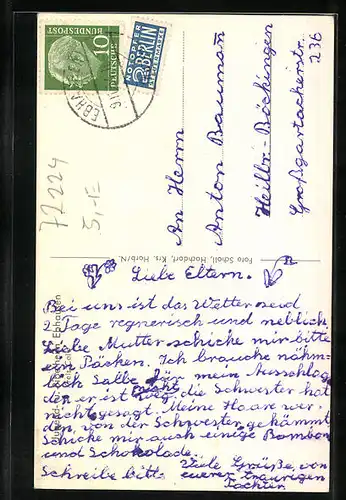 DEUTSCHE
BUNDESPOST
10
NOTOPFER
2 BERLIN
STEUERMARKE
EBHA
72224
5,-E
An Herrn
Anton Bauman
Heilbr.-Böckingen
Großgartacherstr.
236
Foto Scholl, Hochdorf, Krs. Horb/N.
Liebe Eltern.
Bei uns ist das Wetter seid
2 Tage regnerisch und neblich
Liebe Mutter schicke mir bitte
ein Päcken. Ich brauche nähm-
lich Salbe für mein Ausschlag
den er ist die Schwester hat
nichts gesagt. Meine Haare wer-
den, von der Schwester gekämmt
Schicke mir auch einige Bombon
und Schokolade.
Schreibe bitte
Viele Grüße, von
eurer traurigen
Tochter